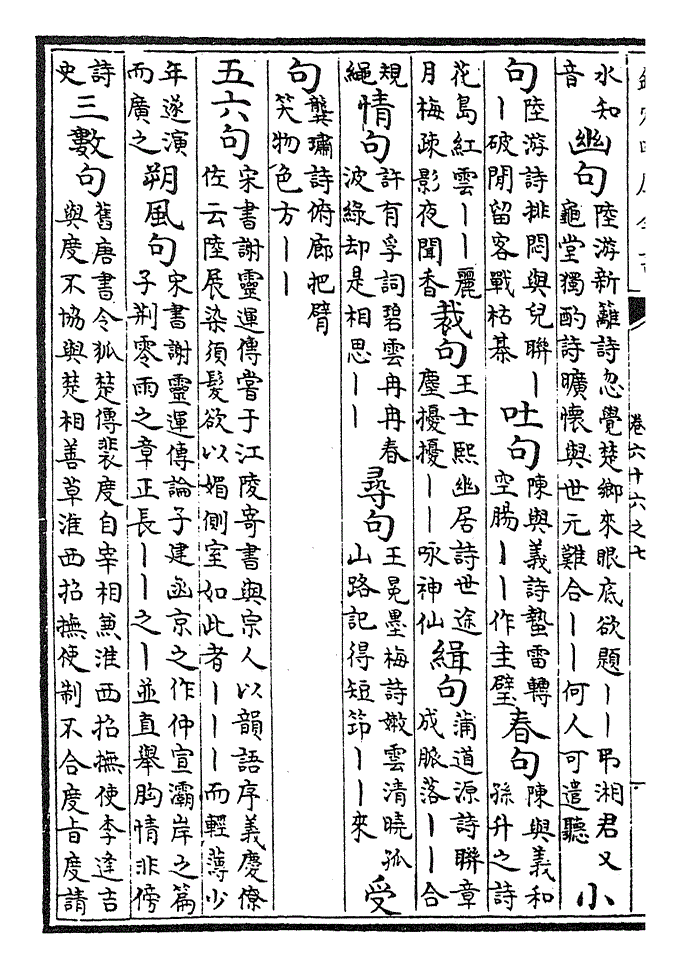 卷六十六之七
水知音幽句陸游新籬詩忽覺楚鄉來眼底欲題丨丨弔湘君又龜堂獨酌詩曠懷與世元難合丨丨何人可遣聽小
句陸游詩排悶與兒聯丨丨破閒留客戰枯棊吐句陳與義詩蟄雷轉空腸丨丨作圭璧春句陳與義和孫升之詩
花島紅雲丨丨麗月梅疎影夜聞香裁句王士熙幽居詩世途塵擾擾丨丨咏神仙緝句蒲道源詩聯章成脈落丨丨合
規繩情句許有孚詞碧雲冉冉春波綠却是相思丨丨尋句王冕墨梅詩嫩雲清曉孤山路記得短笻丨丨來受
句龔璛詩俯廊把臂笑物色方丨丨
五六句宋書謝靈運傳嘗于江陵寄書與宗人以韻語序義慶僚佐云陸展染須髮欲以媚側室如此者丨丨丨而輕薄少
年遂演而廣之朔風句宋書謝靈運傳論子建函京之作仲宣灞岸之篇子荆零雨之章正長丨丨之丨並直舉胸情非傍
詩史三數句舊唐書令狐楚傳裴度自宰相兼淮西招撫使李逢吉與度不協與楚相善草淮西招撫使制不合度旨度請